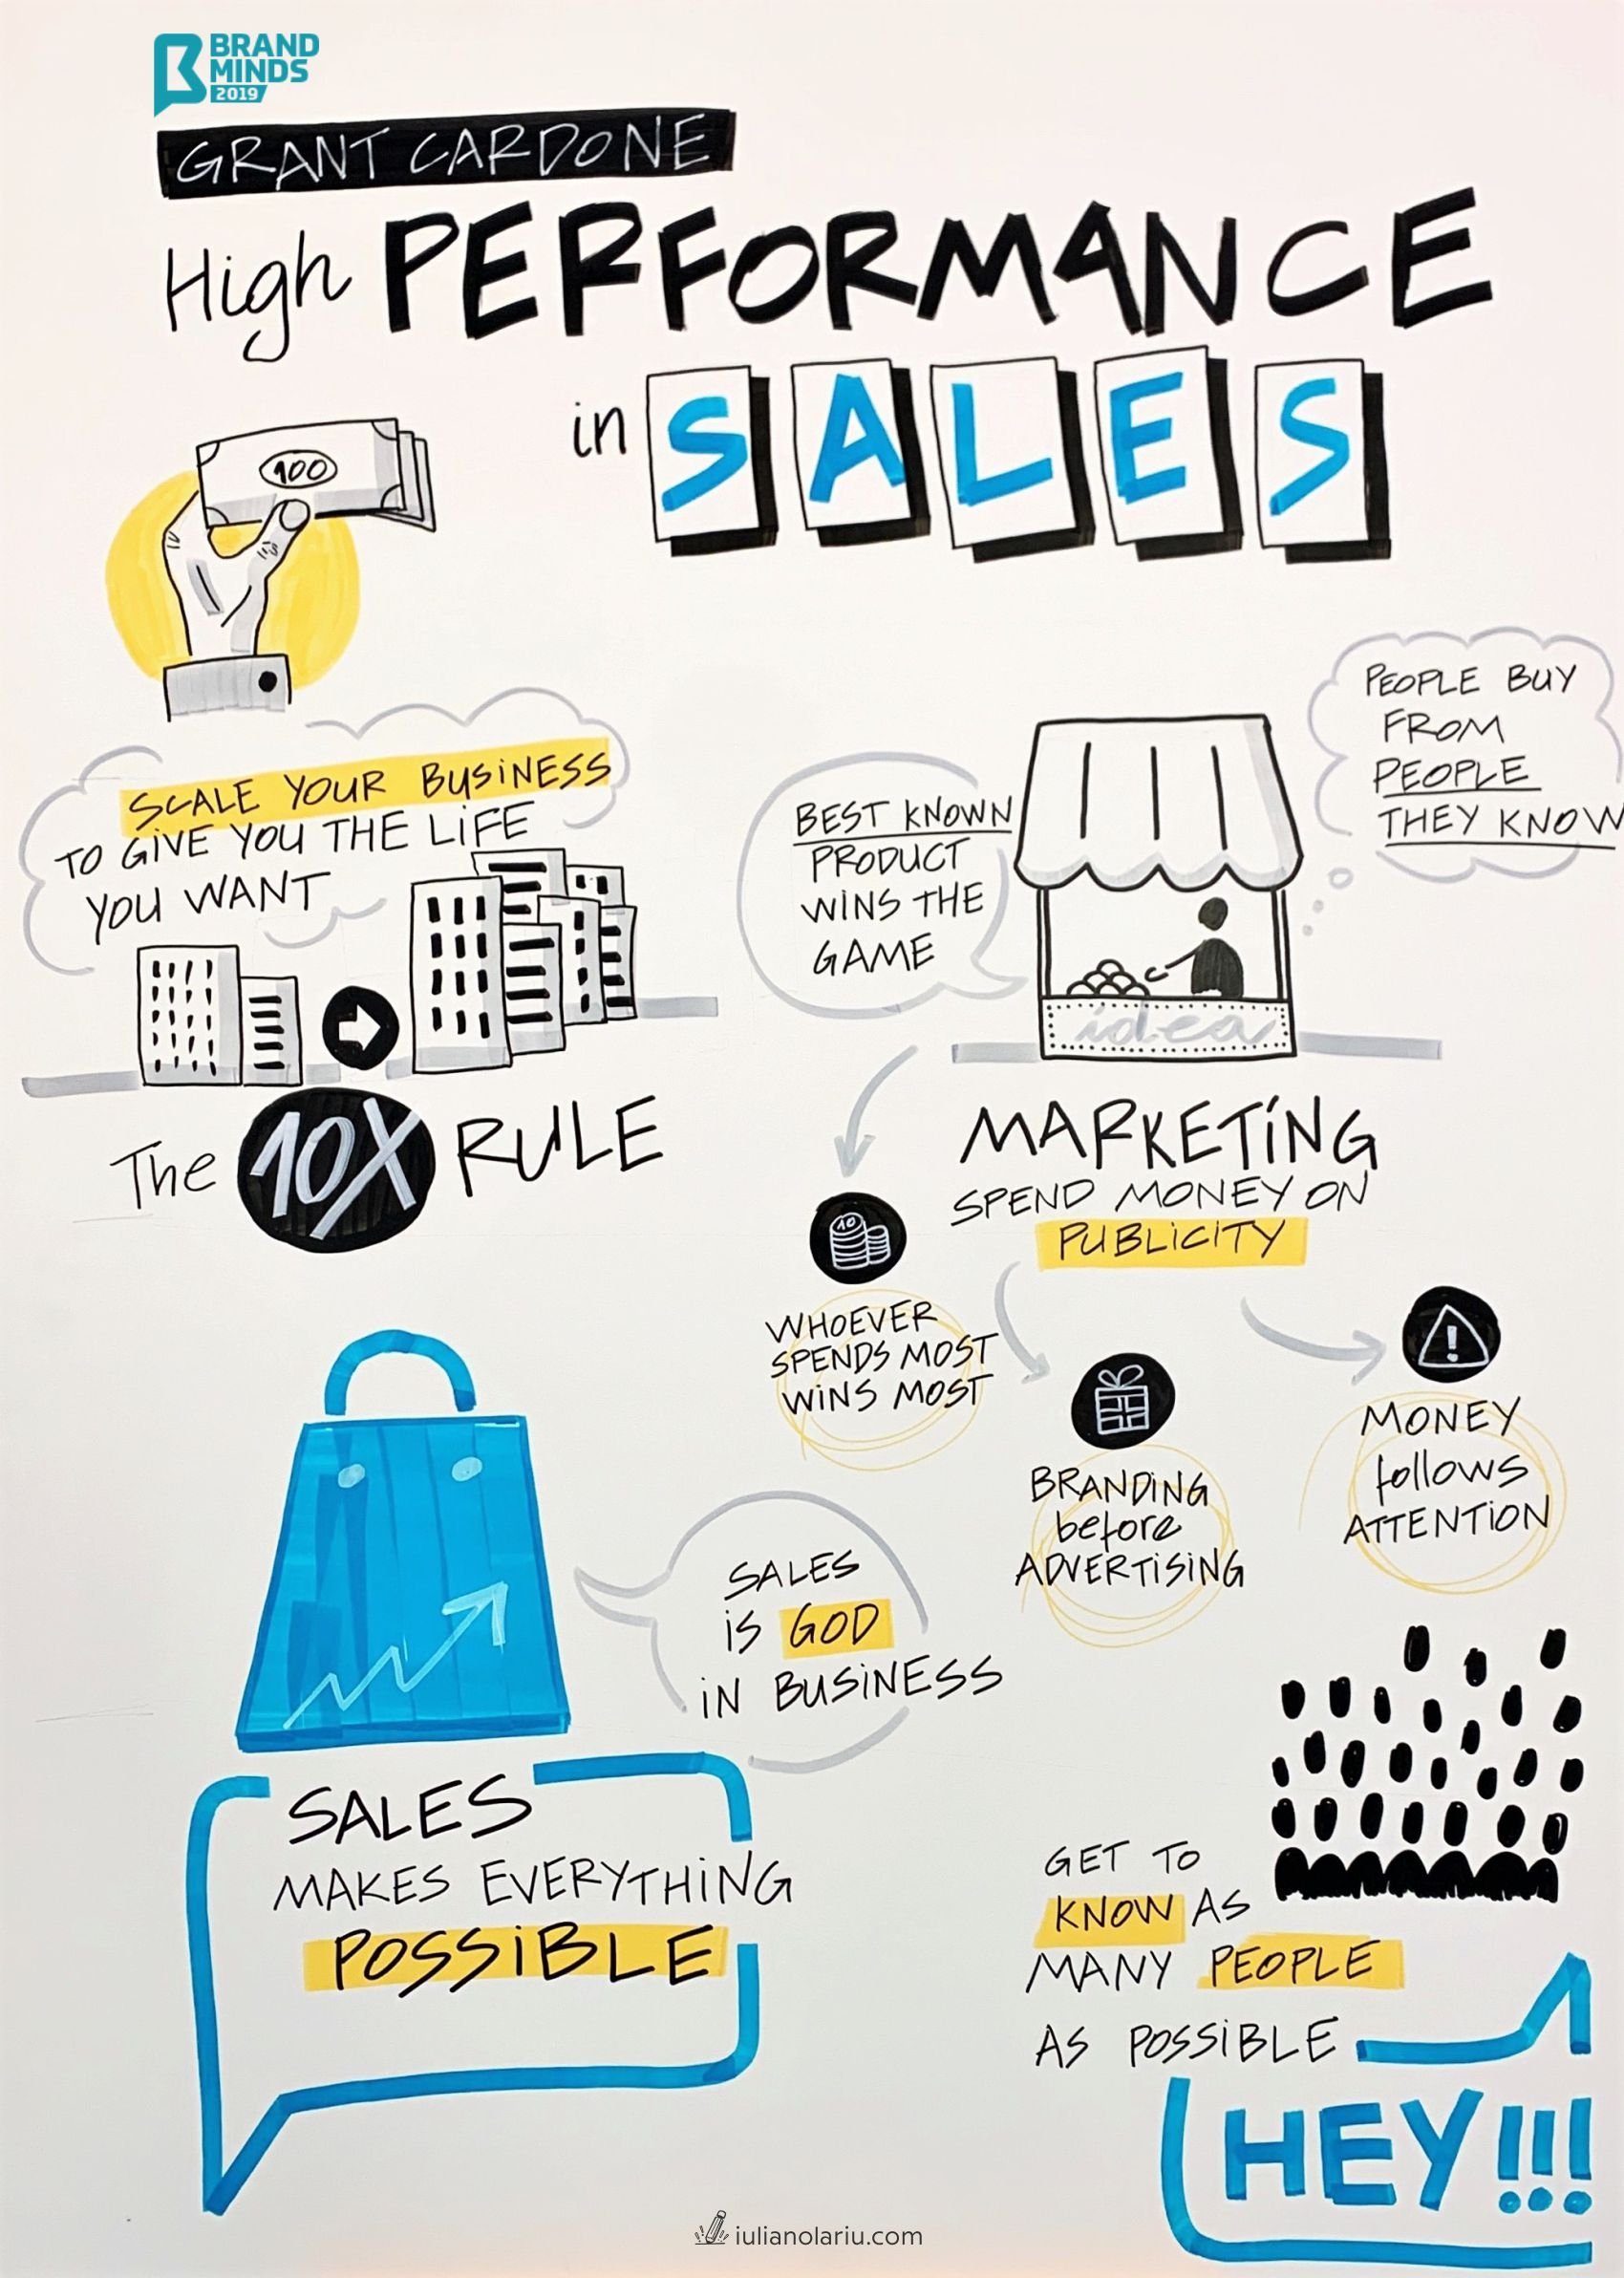 BRAND
MINDS
2019
GRANT CARDONE
High PERFORMANCE
in SALES
100
SCALE YOUR BUSINESS
TO GIVE YOU THE LIFE
YOU WANT
The 10X RULE
PEOPLE BUY
FROM
PEOPLE
THEY KNOW
BEST KNOWN
PRODUCT
WINS THE
GAME
idea
MARKETING
SPEND MONEY ON
PUBLICITY
10
WHOEVER
SPENDS MOST
WINS MOST
BRANDING
before
ADVERTISING
!
MONEY
follows
ATTENTION
SALES
IS GOD
IN BUSINESS
SALES
MAKES EVERYTHING
POSSIBLE
GET TO
KNOW AS
MANY PEOPLE
AS POSSIBLE
HEY!!!
iulianolariu.com